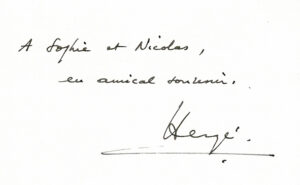 A Sophie et Nicolas,
en amical souvenir.
Hergé.